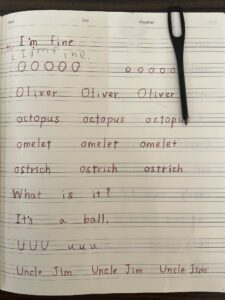 Date Day Weather
I'm fine
I'm fine.
O O O O O o o o o o
Oliver Oliver Oliver
octopus octopus octopus
omelet omelet omelet
ostrich ostrich ostrich
What is it?
It's a ball.
U U U u u u
Uncle Jim Uncle Jim Uncle Jim